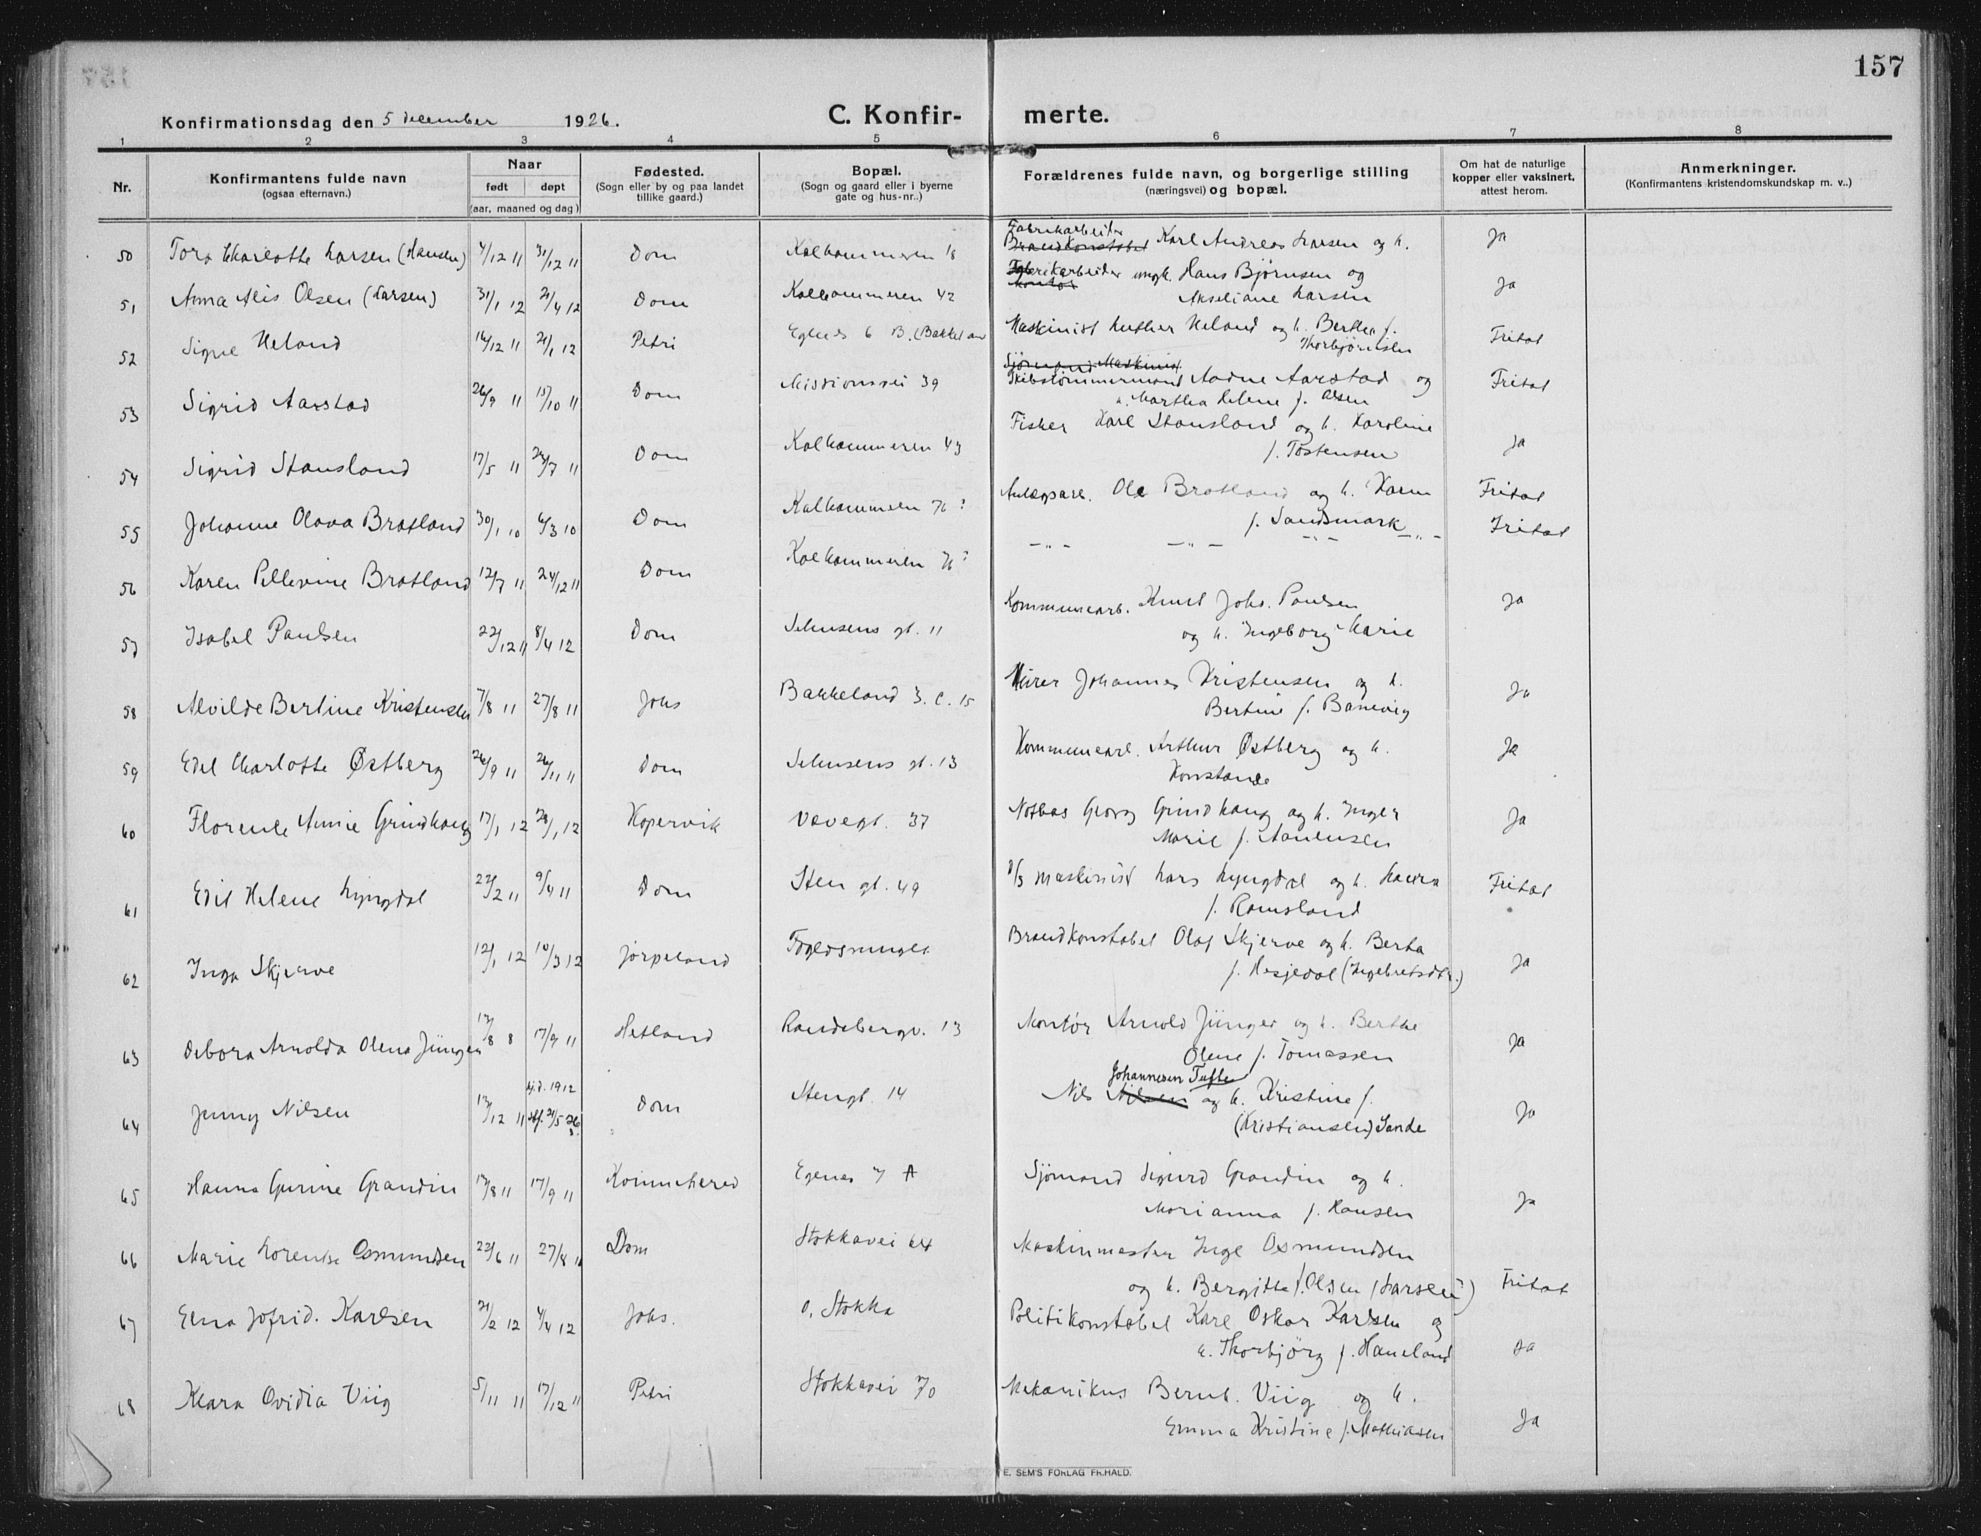 157
Konfirmationsdag den 5 december 1926.
C. Konfir- merte.
1 2 3 4 5 6 7 8
Nr.
Konfirmantens fulde navn
(ogsaa efternavn.)
Naar
født døpt
(aar, maaned og dag)
Fødested.
(Sogn eller by og paa landet
tillike gaard.)
Bopæl.
(Sogn og gaard eller i byerne
gate og hus-nr..)
Forældrenes fulde navn, og borgerlige stilling
(næringsvei) og bopæl.
Om hat de naturlige
kopper eller vaksinert,
attest herom.
Anmerkninger.
(Konfirmantens kristendomskundskap m. v..)
Fabrikarbeider
50 Tora Charlotte Larsen (Hansen) 4/12 11 31/12 11 Dom Kalhammeren 18 Brandkonstabel Karl Andreas Larsen og h. Ja
51 Anna Alis Olsen (Larsen) 31/1 12 21/4 12 Dom Kalhammeren 42 Fabrikarbeider ungk. Hans Bjørnsen og
Akseliane Larsen Ja
52 Signe Heland 16/12 11 21/1 12 Petri Egenes 6 B. Maskinist Luther Heland og h. Berthea f.
Thorbjørnsen Fritat
Maskinist
53 Sigrid Aarstad 26/9 11 15/10 11 Dom Missionsvei 39 Skibstømmermand Aadne Aarstad og
h. Martha Helene f. Olsen Fritat
54 Sigrid Stansland 17/5 11 24/7 11 Dom Kalhammeren 43 Fisker Karl Stansland og h. Karoline
f. Tostensen Ja
55 Johanne Olava Bratland 30/1 10 6/3 10 Dom Kalhammeren 76 ? Anlægsarb. Ole Bratland og h. Karen
f. Sandsmark Fritat
56 Karen Pellevine Bratland 12/7 11 24/12 11 Dom Kalhammeren 76 ? -„- -„- -„- -„- Fritat
57 Isabel Paulsen 22/12 11 8/4 12 Dom Jelensens gt. 11 Kommunearb. Knut Johs. Paulsen
og h. Ingeborg Marie Ja
58 Alvilde Bertine Kristensen 7/8 11 27/8 11 Johs Bakkeland 3. C. 15 Murer Johannes Kristensen og h.
Bertine f. Banevig Ja
59 Edel Charlotte Østberg 26/9 11 26/11 11 Dom Jelensens gt. 13 Kommunearb. Arthur Østberg og h.
Konstance Ja
60 Florence Annie Grindhaug 17/1 12 28/1 12 Kopervik Vævegt. 37 Notbas Georg Grindhaug og h. Inger
Marie f. Aanensen Ja
61 Edit Helene Lyngdal 22/2 11 9/4 11 Dom Sten gt. 49 D/S maskinist Lars Lyngdal og h. Laura
f. Ramsland Fritat
62 Inga Skjerve 12/1 12 10/3 12 Jørpeland Brandkonstabel Olaf Skjerve og h. Berta
f. Hesjedal (Ingebretsdtr.) Ja
63 Debora Arnolda Olena Jünger 17/8 8 17/9 11 Hetland Randabergv. 13 Montør Arnold Jünger og h. Berthe
Olene f. Tomassen Ja
hj.d. 1912 Johannesen Tufte
64 Jenny Nilsen 17/12 11 stf. 21/5 26 Dom Stengt. 14 Nils Nilsen og h. Kristine f.
(Kristiansen) Sande Ja
65 Hanna Gurine Grandin 17/8 11 17/9 11 Kvinnehered Egenes 7 A Sjømand Sigurd Grandin og h.
Marianna f. Hansen Ja
66 Marie Lorentse Osmundsen 22/6 11 27/8 11 Dom Stokkavei 64 Maskinmester Inge Osmundsen
og h. Bergitte f. Olsen (Larsen) Fritat
67 Elna Jofrid. Karlsen 21/2 12 4/4 12 Johs. o, Stokka Politikonstabel Karl Oskar Karlsen og
h. Thorbjørg f. Haneland Ja
68 Klara Ovidia Viig 5/11 11 17/12 11 Petri Stokkavei 70 Mekanikus Bernt. Viig og h.
Emma Kristine f. Mathiasen Ja
E. SEM'S FORLAG FR.HALD.